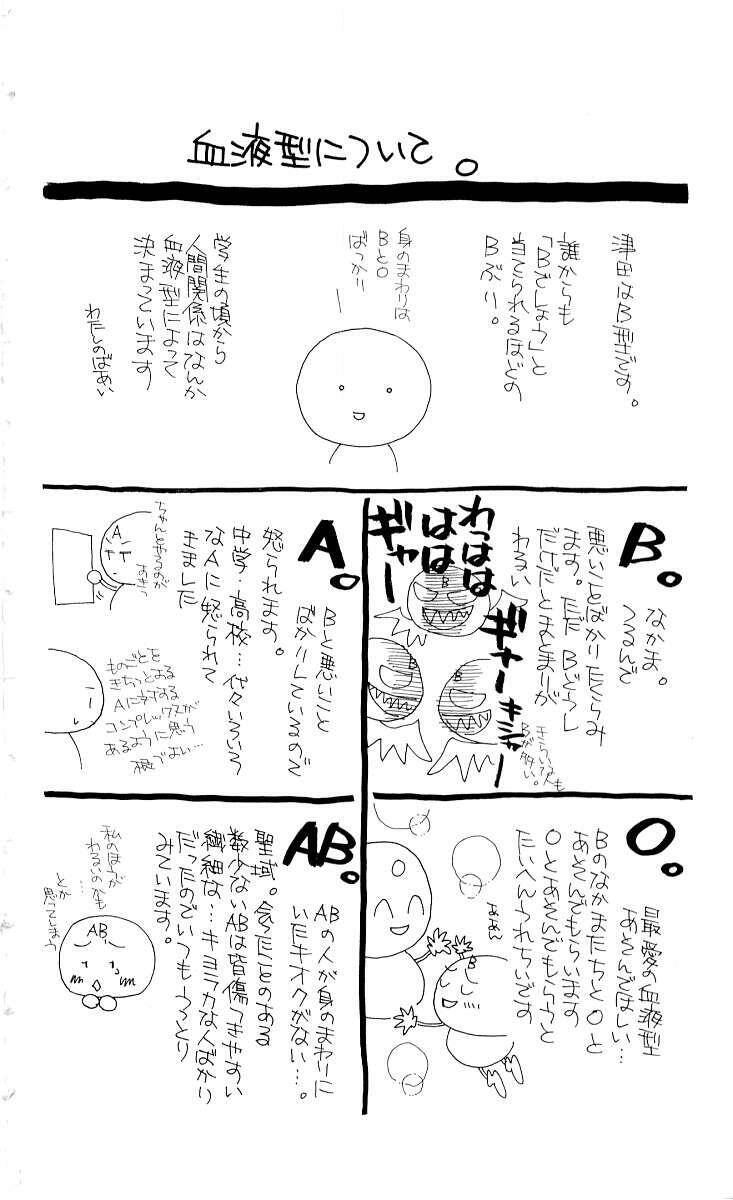 血液型について。
津田はB型です。
誰からも
「Bでしょう」と
当てられるほどの
Bぶり。
身のまわりは
BとO
ばっかり
学生の頃から
人間関係はなんか
血液型によって
決まっています
わたしのばあい
B。
なかま。
つるんで
悪いことばかりたくらみ
ます。ただBどうし
だけだとまとまりが
わるい
わははは
はは
ギャー
ギャー
キシャー
きらいな人も
Bが多い。
A。
Bと悪いこと
ばかりしているので
怒られます。
中学・高校…代々いろいろ
なAに怒られて
きました
ちゃんとやるのが
あたりまえ
ものごとを
きちっとやる
Aに対する
コンプレックスが
あるように思う
O。
最愛の血液型
あそんでほしい…
Bのなかまたちと O と
あそんでもらいます
Oとあそんでもらうと
たいへんうれしいです
ああん
AB。
ABの人が身のまわりに
いたキオクがない…。
聖域。会ったことのある
数少ないABは皆傷つきやすい
繊細な…キヨラカな人ばかり
だったのでいつもうっとり
みています。
私のほうが
わるいのかも
とか
思ってしまう